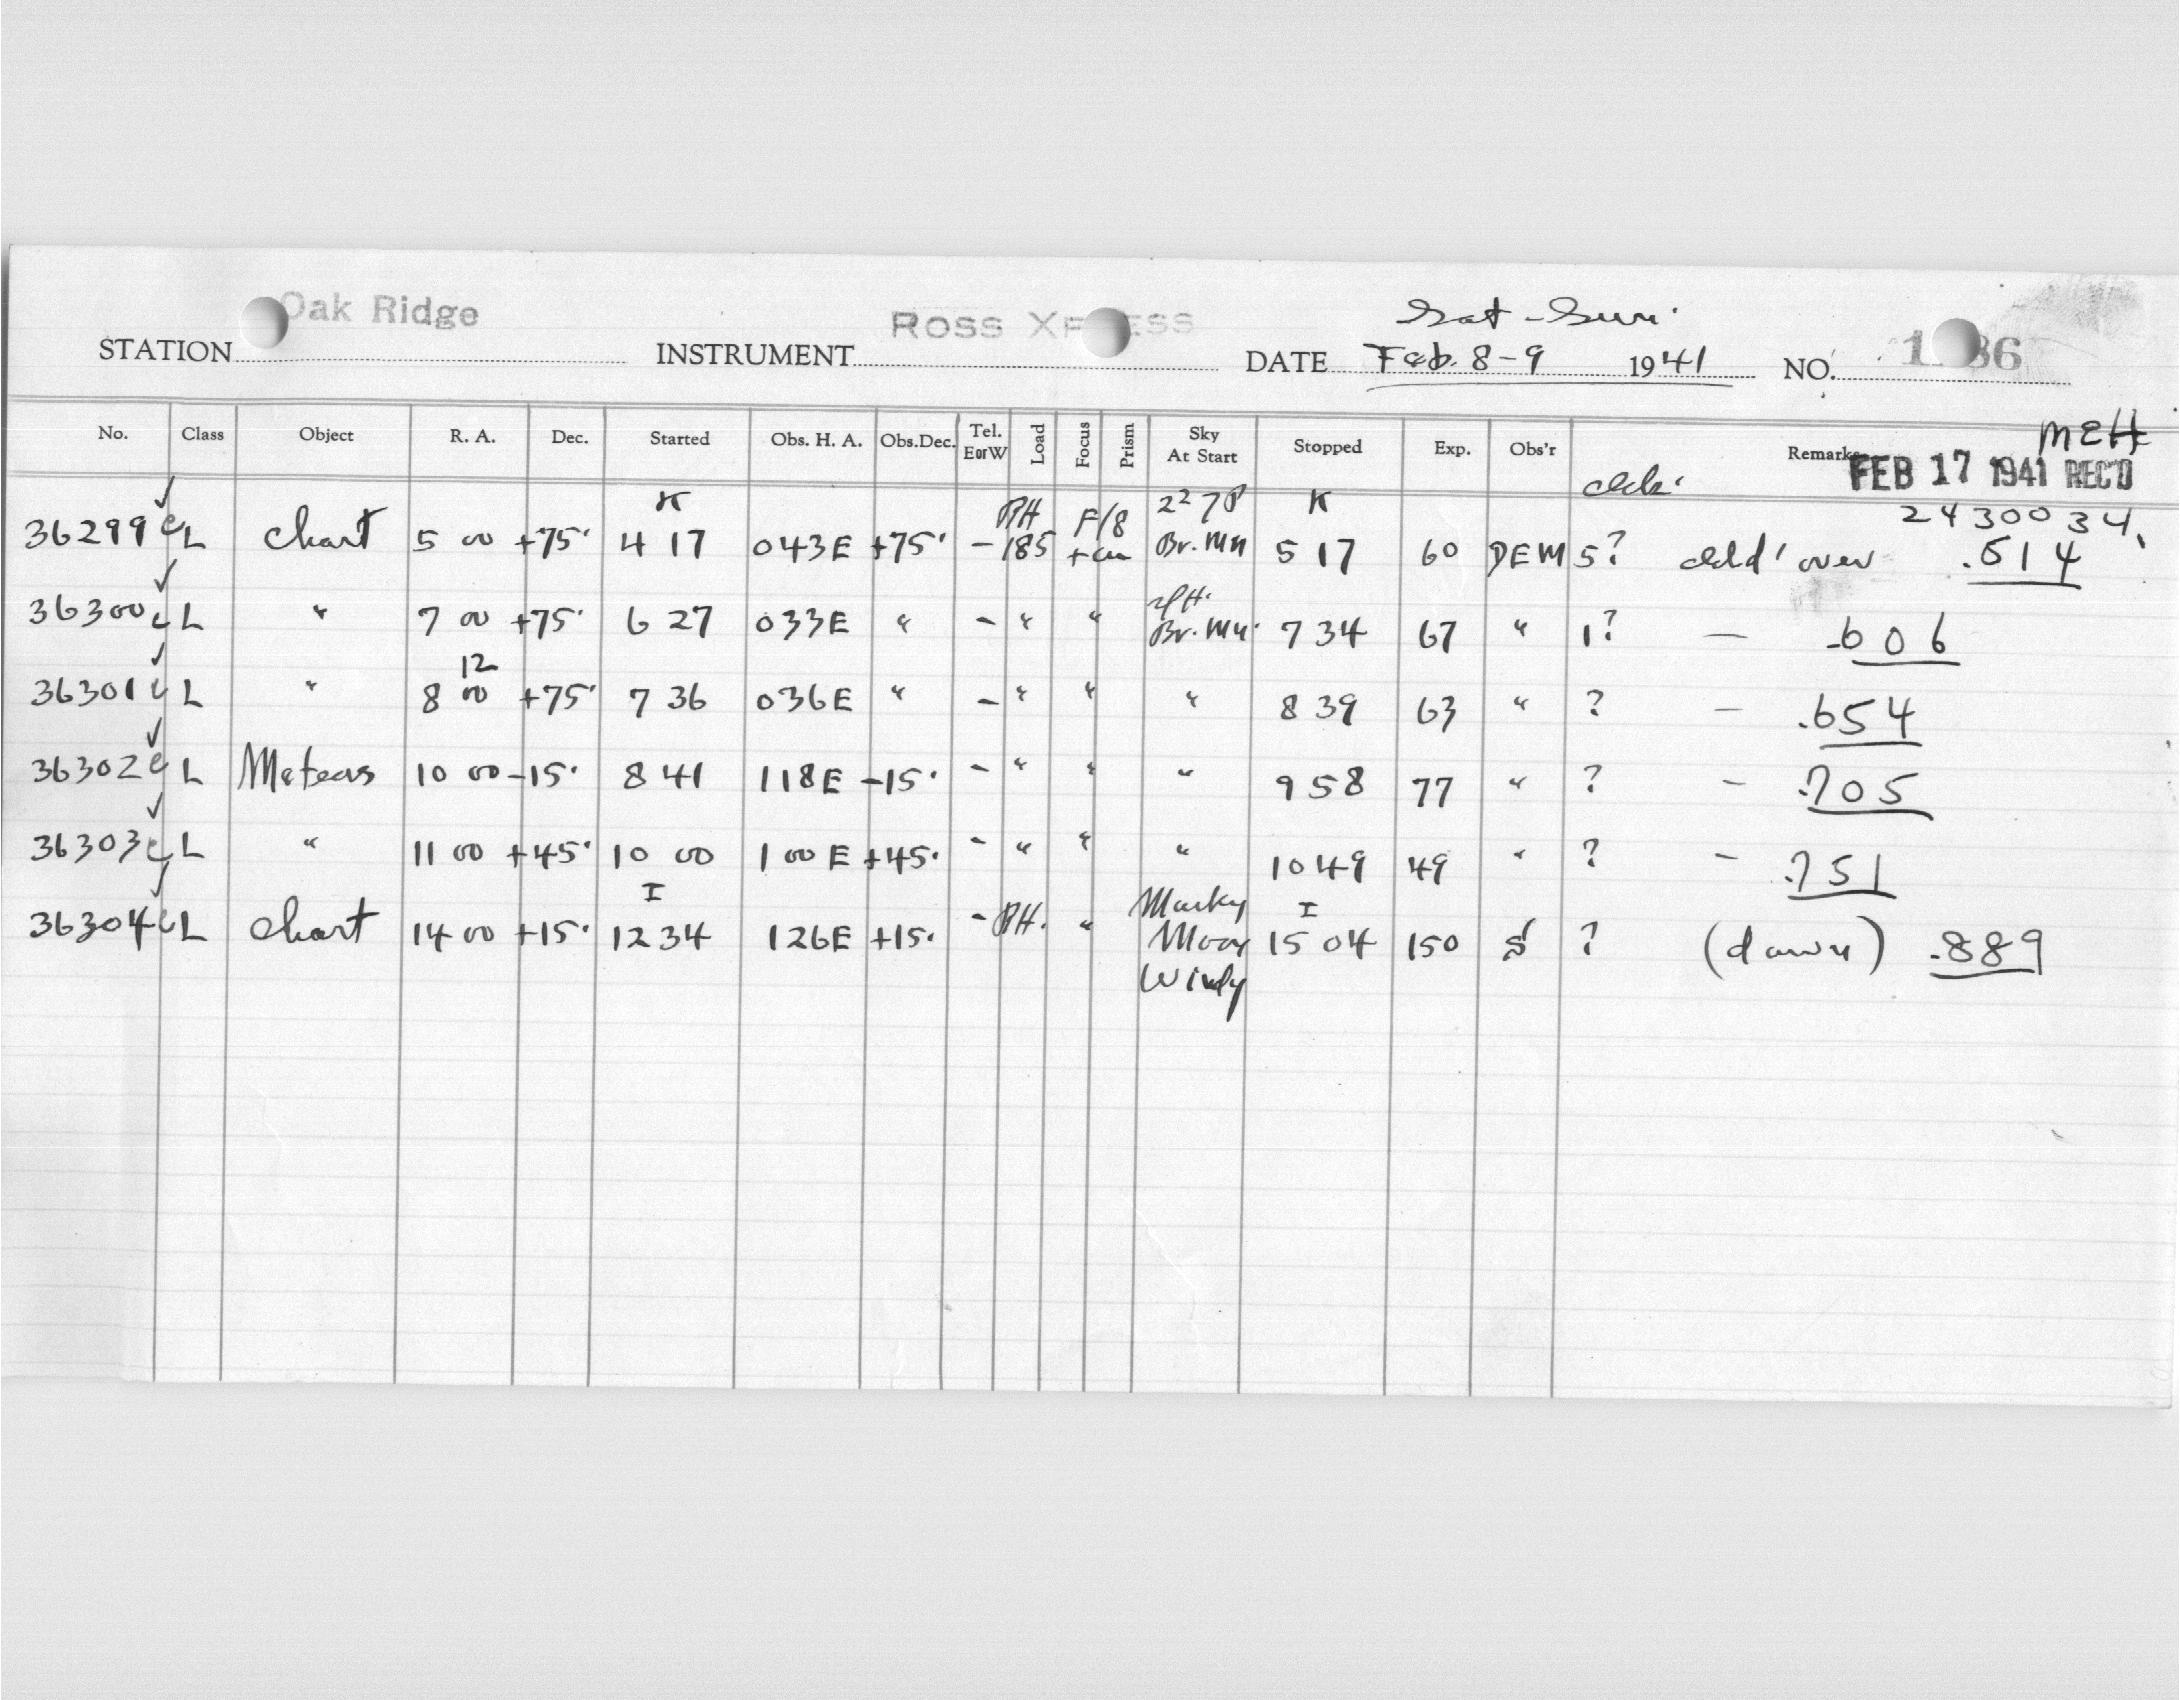 Oak Ridge ROSS Sat-Sun.
STATION INSTRUMENT DATE Feb. 8-9 1941 NO.
MEH
No. Class Object R. A. Dec. Started Obs. H. A. Obs.Dec. Tel. EorW Load Focus Prism Sky At Start Stopped Exp. Obs'r Remarks
FEB 17 1941 REC'D
K RH F/8 22 7P K 2430034.
36299 L Chart 5 00 +75· 4 17 043E +75· - 185 Br. Mn 5 17 60 DEM 5? cld' over .514
36300 L " 7 00 +75· 6 27 033E " - " " Br. Mn. 7 34 67 " 1? — .606
12
36301 L " 8 00 +75' 7 36 036E " - " " " 8 39 63 " ? — .654
36302 L Meteors 10 00 -15· 8 41 118E -15· - " " " 9 58 77 " ? — .705
36303 L " 11 00 +45· 10 00 1 00 E +45· - " " " 10 49 49 " ? — .751
I Murky I
36304 L Chart 14 00 +15· 12 34 126E +15· - RH. " Moon 15 04 150 ? (dawn) .889
Windy